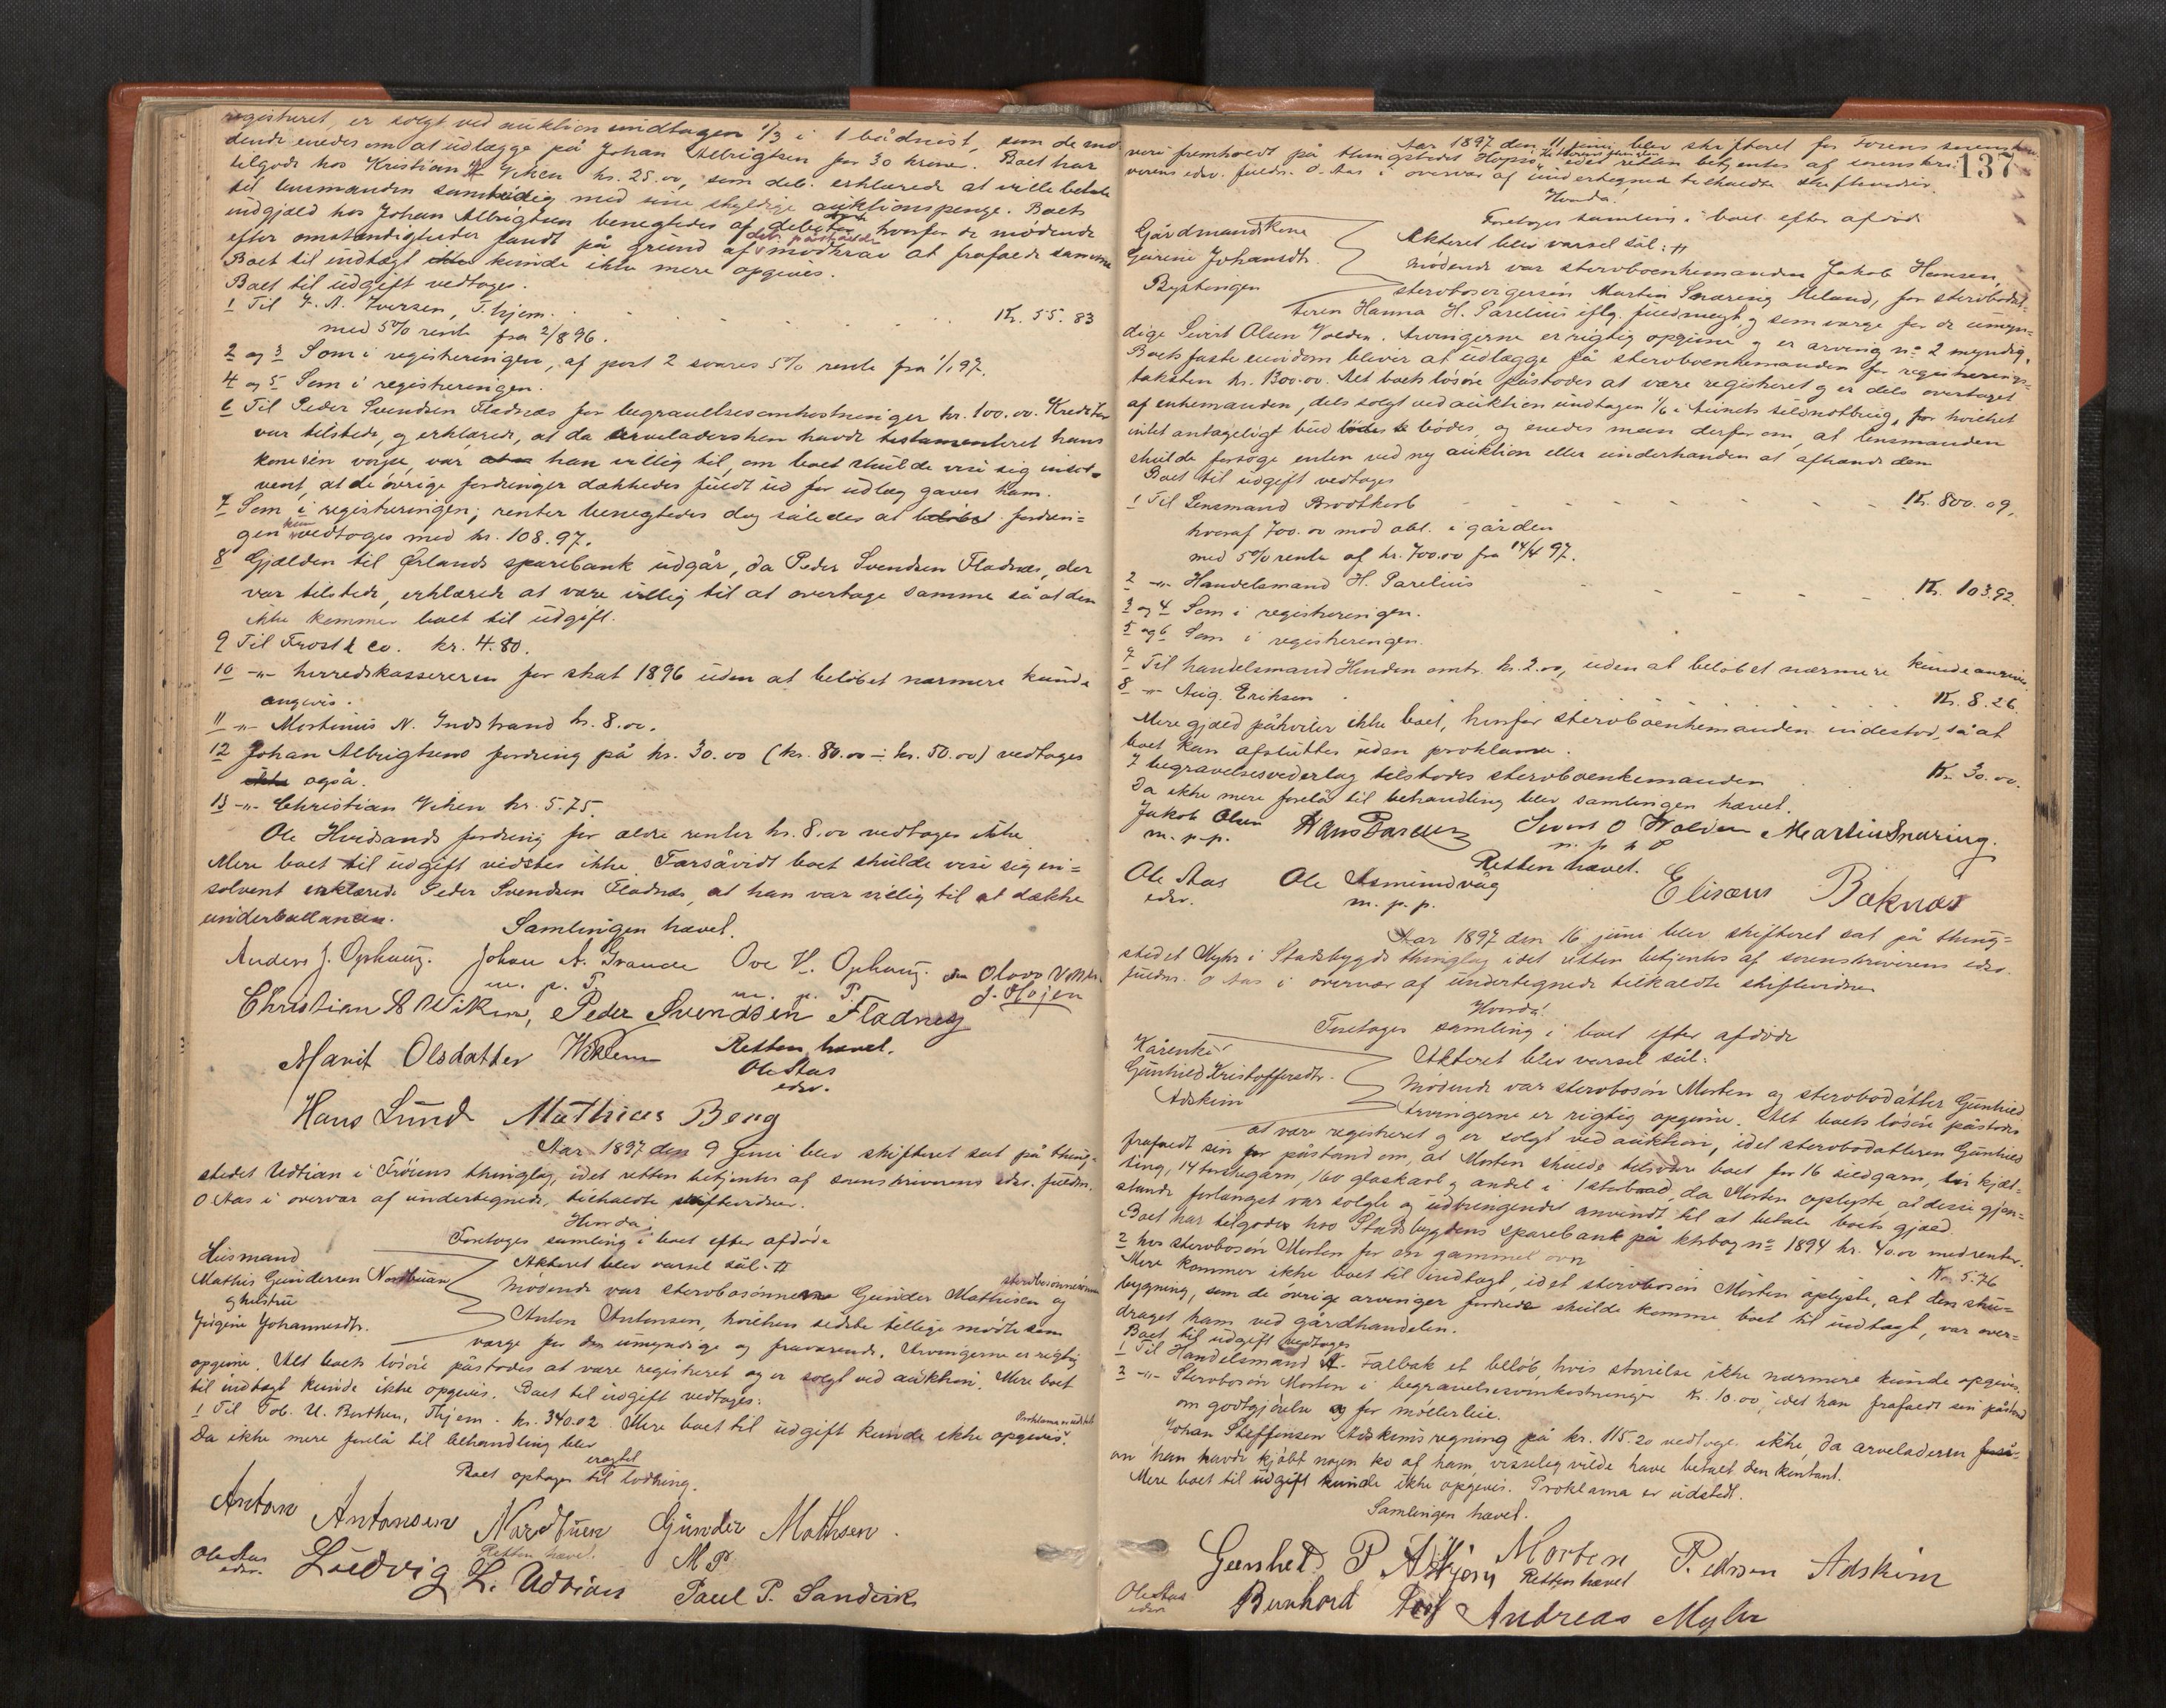 registreret, er solgt ved auktion undtagen 1/3 i 1 bådnist, som de mø-
dende enedes om at udlægge på Johan Albrigtsen for 30 krone. Boet har
tilgode hos Kristian A Viken kr. 25.00, som deb. erklærede at ville betale
til lensmanden samtidig med sine skyldige auktionspenge. Boets
indgjæld hos Johan Albrigtsen benegtedes af debitor, hvorfor de mødende
efter omstændigheder fandt på grund af deb. påståede modkrav at frafalde samme
Boet til indtægt kunde ikke mere opgives.
Boet til udgift vedtoges.
1 Til J. N. Iversen, T.hjem. Kr. 55.83
med 5% rente fra 2/8 96.
2 og 3 Som i registreringen, af post 2 svares 5% rente fra 1/1 97.
4 og 5 Som i registreringen.
6 Til Peder Svendsen Fladnæs for begravelsesomkostninger kr. 100.00. Kreditor
var tilstede, og erklærede, at da arveladersken havde testamenteret hans
kone sin vogn, var han villig til, om boet skulde vise sig insol-
vent, at de øvrige fordringer dækkedes fuldt ud før udlæg gaves ham.
7 Som i registreringen; renter benegtedes dog således at fordrin-
gen kun vedtoges med kr. 108.97.
8 Gjælden til Ørlands sparebank udgår, da Peder Svendsen Fladnæs, der
var tilstede, erklærede at være villig til at overtage samme så at den
ikke kommer boet til udgift.
9 Til Frost & Co. kr. 4.80.
10 -"- herredskassereren for skat 1896 uden at beløbet nærmere kunde
angives.
11 -"- Mortinus N. Indstrand kr. 8.00.
12 Johan Albrigtsens fordring på kr. 30.00 (kr. 80.00 ÷ kr. 50.00) vedtoges
ikke også.
13 -"- Christian Viken kr. 5.75.
Ole Hvidsands fordring for ældre renter kr. 8.00 vedtoges ikke
Mere boet til udgift vidstes ikke. Forsåvidt boet skulde vise sig in-
solvent erklærede Peder Svendsen Fladnæs, at han var villig til at dække
underballancen.
Samlingen hævet.
Anders J. Ophaug. Johan A. Grande Ove H. Ophaug.
m. p. P. m. p. P.
Christian A Wiken, Peder Svendsen Fladnes
Marit Olsdatter Wiklem Retten hævet.
Ole Aas
edsv.
Hans Lund Mathias Berg
Aar 1897 den 9 juni blev skifteret sat på thing-
stedet Udtian i Frøiens thinglag, idet retten betjentes af sorenskriverens edsv. fuldm.
O Aas i overvær af undertegnede, tilkaldte skiftevidner.
Hvorda:
Foretoges samling i boet efter afdøde
Husmand
Mathis Gundersen Nordbuan
og hustru
Jørgine Johannesdtr.
Akteret blev varsel sål. #
Mødende var stervbosønnen Gunder Mathisen og stervbosønnesønnen
Anton Antonsen, hvilken sidste tillige mødte som
værge for den umyndige og fraværende. Arvingerne er rigtig
opgivne. Alt boets løsøre påstodes at være registreret og er solgt ved auktion. Mere boet
til indtægt kunde ikke opgives. Boet til udgift vedtoges:
1 Til Tob. U. Borthen, Thjem. kr. 340.02. Mere boet til udgift kunde ikke opgives. Proklama er udstedt
Da ikke mere forelå til behandling blev
eragtet
Boet optages til lodning.
Anton Antonsen Nordbuen Gunder Mathsen.
Retten hævet. M P.
Ole Aas
edsv. Ludvig L. Udtian Paul P. Sandvik
137
Aar 1897 den 11 juni blev skifteret for Fosens sorenskri-
veri fremholdt på thingstedet Hopsjø i Hitterens thinglag idet retten betjentes af sorenskri-
verens edsv. fuldm. O. Aas i overvær af undertegnede tilkaldte skiftevidner.
Hvorda:
Foretoges samling i boet efter afdøde
Gårdmandskone
Gurine Johansdtr.
Bystengen
Akteret blev varsel sål: #
Mødende var stervboenkemanden Jakob Hansen,
stervbosvigersøn Martin Snæring Meland, for sterbodat-
teren Hanna H. Parelius iflg. fuldmagt, og som værge for de umyn-
dige Sivert Olsen Volden. Arvingerne er rigtig opgivne og er arving no 2 myndig.
Boets faste eiendom bliver at udlægge på stervboenkemanden for registrerings-
taksten kr. 1300.00. Alt boets løsøre påstodes at være registreret og er dels overtaget
af enkemanden, dels solgt ved auktion undtagen 1/6 i tvinets sildnotbrug, for hvilket
intet antageligt bud bødes, og enedes man derfor om, at lensmanden
skulde forsøge enten ved ny auktion eller underhånden at afhænde den
Boet til udgift vedtoges
1 Til Lensmand Brodtkorb Kr. 800.09.
hvoraf 700.00 mod obl. i gården
med 5% rente af kr. 700.00 fra 14/4 97.
2 -"- Handelsmand H. Parelius Kr. 103.92.
3 og 4 Som i registreringen.
5 og 6 Som i registreringen.
7 Til handelsmand Hinden omtr. kr. 2.00, uden at beløbet nærmere kunde angives
8 -"- Aug. Eriksen Kr. 8.26.
Mere gjæld påhviler ikke boet, hvorfor stervboenkemanden indestod, så at
boet kan afsluttes uden proklama.
I begravelsesvederlag tilstodes stervboenkemanden Kr. 30.00.
Da ikke mere forelå til behandling blev samlingen hævet.
Jakob Olsen Hans Parelius Sivert O Wolden Martin Snæring.
m. p. p. m. p. p
Retten hævet.
Ole Aas Ole Asmundvåg Elisæus Bæknæs
edsv. m. p. p.
Aar 1897 den 16 juni blev skifteret sat på thing-
stedet Myhr i Stadsbygds thinglag idet retten betjentes af sorenskriverens edsv.
fuldm. O Aas i overvær af undertegnede tilkaldte skiftevidner
Hvorda:
Foretoges samling i boet efter afdøde
Kårenke
Gunhild Kristoffersdtr.
Adskim
Akteret blev varsel sål.
Mødende var stervbosøn Morten og stervbodatter Gunhild
Arvingerne er rigtig opgivne. Alt boets løsøre påstodes
at være registreret og er solgt ved auktion, idet stervbodatteren Gunhild
frafaldt sin påstand om, at Morten skulde tilsvare boet for 16 sildgarn, kjæt-
ting, 14 torskegarn, 160 glaskavl og andel i 1 storbaad, da Morten oplyste, at disse gjen-
stande forlængst var solgte og udbringendet anvendt til at betale boets gjæld.
Boet har tilgode hos Stadsbygdens sparebank på ktrbog no 1894 kr. 40.00 med renter.
2 hos stervbosøn Morten for en gammel ovn Kr. 5.76
Mere kommer ikke boet til indtægt, idet sterbosøn Morten oplyste, at den stue-
bygning, som de øvrige arvinger fordrede skulde komme boet til indtægt, var over-
draget ham ved gårdhandelen.
Boet til udgift vedtoges
1 Til Handelsmand A. Falbak et beløb, hvis størrelse ikke nærmere kunde opgives.
2 -"- Sterbosøn Morten i begravelsesomkostninger Kr. 10.00, idet han frafaldt sin påstand
om godtgjørelse for møllerleie.
Johan Steffensen Adskims regning på kr. 115.20 vedtoges ikke, da arveladeren
om han havde kjøbt nogen ko af ham, visselig vilde have betalt den kontant.
Mere boet til udgift kunde ikke opgives. Proklama er udstedt.
Samlingen hævet.
Gunhel P Askjem Morten Pedersen Adskim
Retten hævet
Ole Aas
edsv Bernhard Andreas Myhr